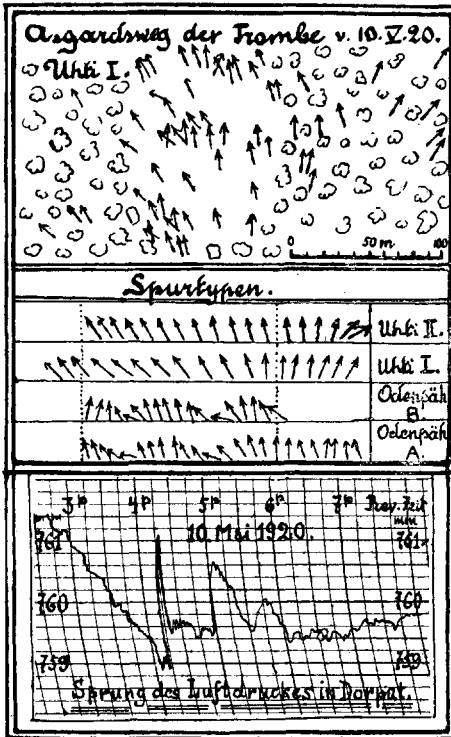 Asgardsweg der Trombe v. 10.V.20.
Uhti I.
0 50 m 100
Spurtypen.
Uhti II.
Uhti I.
Odenpäh
B.
Odenpäh
A.
3p 4p 5p 6p 7p
mm
10 Mai 1920.
761 761
760 760
759 759
Sprung des Luftdruckes in Dorpat.